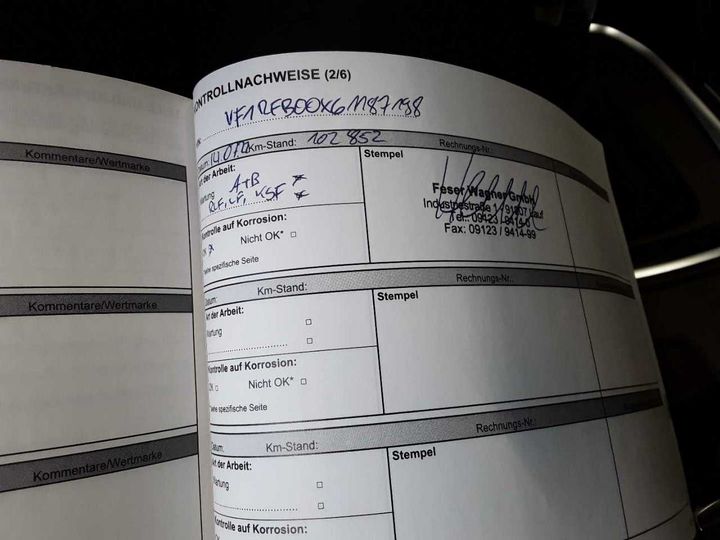 Kommentare/Wertmarke
Kommentare/Wertmarke
Kommentare/Wertmarke
ONTROLLNACHWEISE (2/6)
VF1RFB00X61187198
Datum: Km-Stand: 102 852 Rechnungs-Nr.:
Art der Arbeit: Stempel
Wartung A+B
RLF, LF, KSF
Feser Wagner GmbH
Industriestraße 1 / 91207 Lauf
Tel.: 09123 / 9414-0
Fax: 09123 / 9414-99
Kontrolle auf Korrosion:
OK Nicht OK* □
siehe spezifische Seite
Datum: Km-Stand: Rechnungs-Nr.:
Art der Arbeit: Stempel
Wartung □
........................ □
Kontrolle auf Korrosion:
OK □ Nicht OK* □
*siehe spezifische Seite
Datum: Km-Stand: Rechnungs-Nr.:
Art der Arbeit: Stempel
Wartung □
........................ □
Kontrolle auf Korrosion: